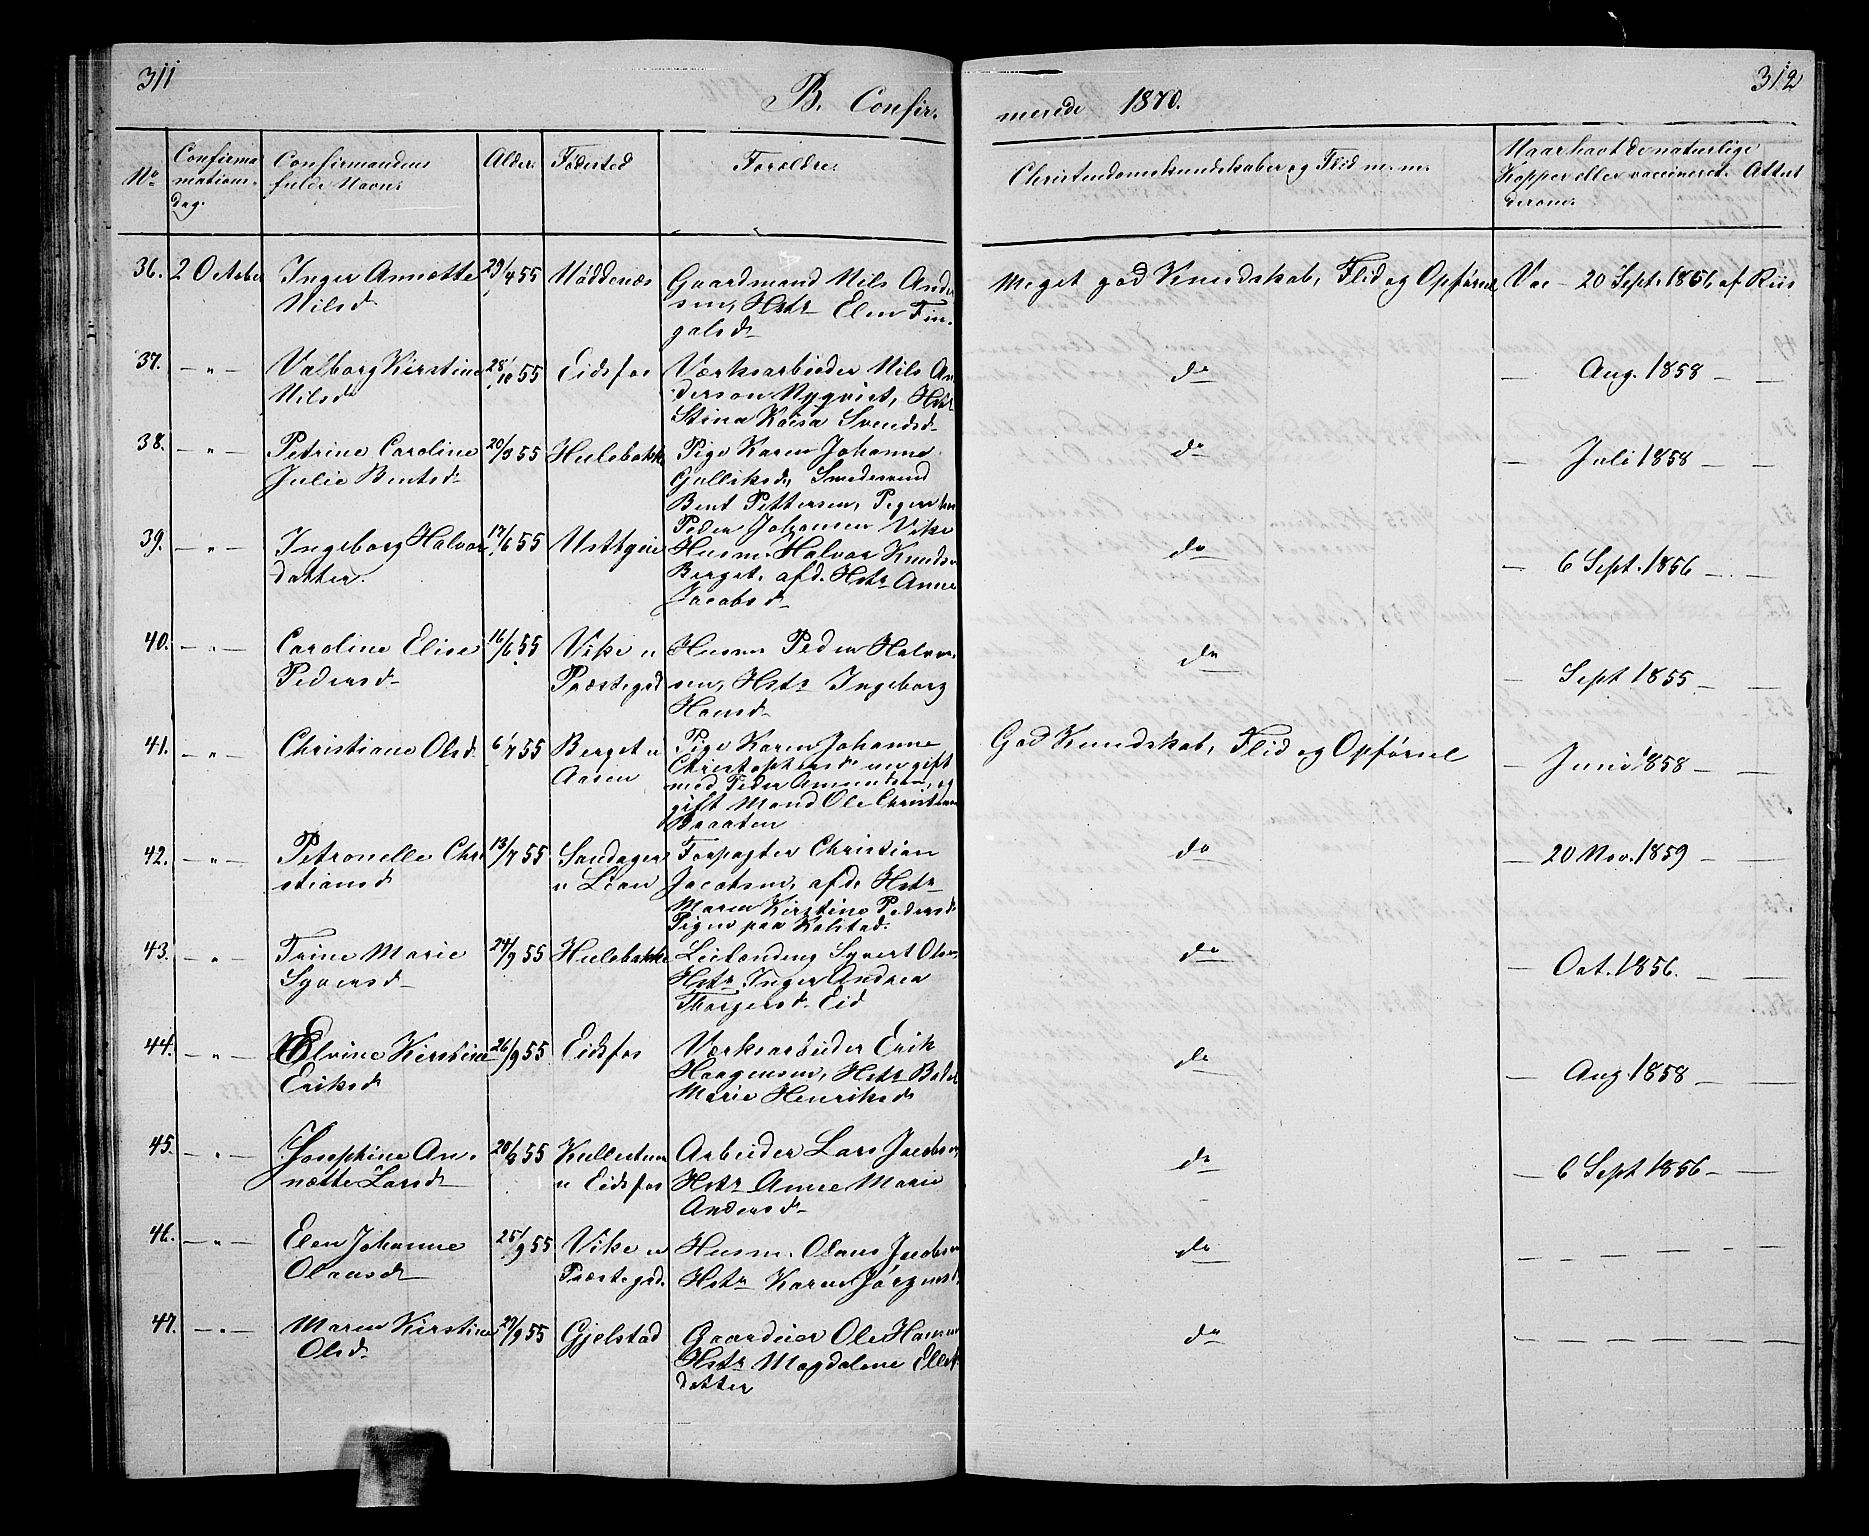 311
B. Confir-
No
Confirma
mations-
dag.
Confirmandens
fulde Navn.
Alder.
Fødested
Forældre.
36. 2 October
Inger Annette
Nilsd.
29/4 55
Nøddenæs
Gaardmand Nils Ander
sen, Hstr Elen Fin-
galsd.
37. — " —
Valborg Kirstine
Nilsd.
28/10 55
Eidsfos
Værksarbeider Nils An
derson Nyqvist, Hstr
Stina Kaisa Svendsd.
38. — " —
Petrine Caroline
Julie Bentsd.
20/3 55
Hulebakke
Pige Karen Johanne
Gulliksd, Smedesvend
Bent Pettersen, Pigen hos
Peder Johansen Vike
39. — " —
Ingeborg Halvor
datter.
17/6 55
Husm. Halvor Knuds
Berget, afd. Hstr Anne
Jacobsd.
40. — " —
Caroline Elise
Pedersd.
16/6 55
Vike u
Præstegrd
Husm Peder Halvor
sen, Hstr Ingeborg
Hansd.
41. — " —
Christiane Olsd.
6/7 55
Berget u
Aasen
Pige Karen Johanne
Christophersd nu gift
med Peder Amundsen, og
gift Mand Ole Christian
Braaten
42. — " —
Petronelle Chri
stiansd
13/7 55
Sandager
u Lian
Forpagter Christian
Jacobsen, afd. Hstr
Maren Kirstine Pedersd.
Pigen paa Kolstad.
43. "
Trine Marie
Syversd.
24/9 55
Hulebakke
Leilending Syvert Olsen
Hstr Inger Andrea
Thorgersd. Eid
44. — " —
Elvine Kirstine
Eriksd
26/9 55
Eidsfos
Værksarbeider Erik
Haagensen, Hstr
Marie Henriksd
45. — " —
Josephine An-
nette Larsd.
55
u Eidsfos
Arbeider Lars Jacobsen
Hstr Anne Marie
Andersd.
46. — " —
Elen Johanne
Olausd
25/9 55
Vike u
Præstegrd.
Husm. Olaus Jacobsen
Hstr Karen Jørgensd.
47. — " —
Maren Kirstine
Olsd.
29/9 55
Gjelstad
Gaardeier Ole Hansen
Hstr Magdalene Ellefs
datter
312
merede 1870.
Christendomskundskaber og Flid m. m.
Naar havt de naturlige
Kopper eller vaccineret. Attest
derom.
Meget god Kundskab, Flid og Opførsel
Vac — 20 Sept. 1856 af Riis
do
— Aug. 1858 — —
do
— Juli 1858 — —
do
— 6 Sept. 1856 — —
do
— Sept 1855 — —
God Kundskab, Flid og Opførsel
— Juni 1858 — —
do
— 20 Nov. 1859 — —
do
— Oct. 1856. — —
do
— Aug. 1858 — —
do
— 6 Sept 1856 — —
do
— — — — — — —
do
— — — — — — —